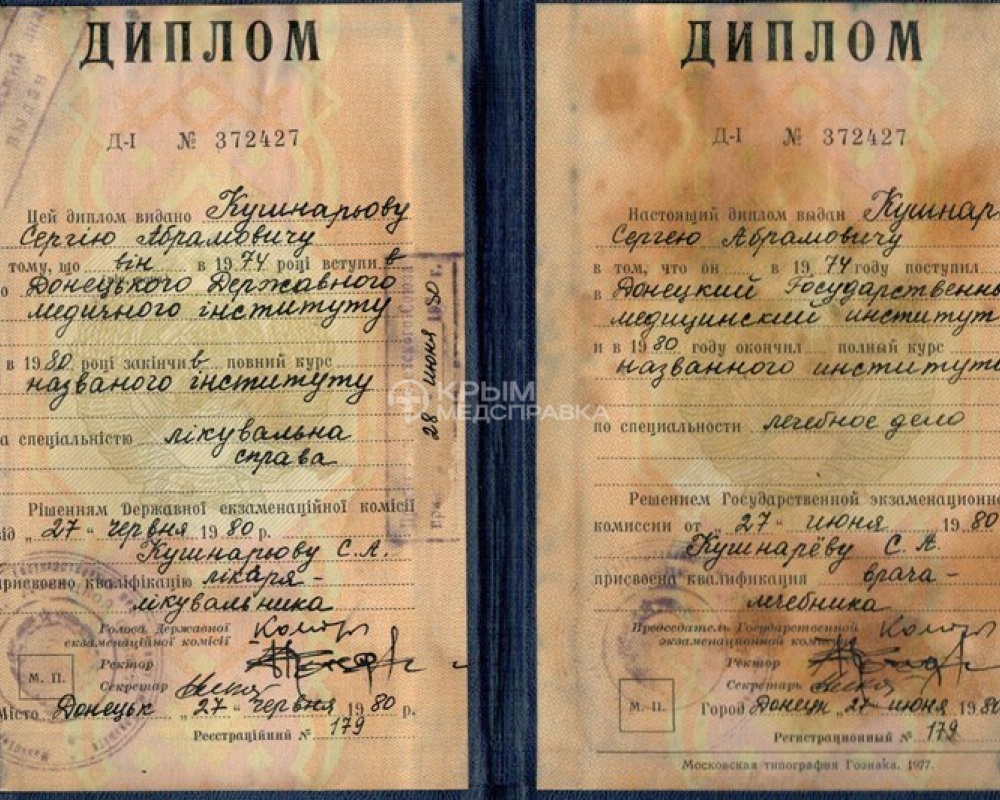 ДИПЛОМ
Д-I № 372427
Цей диплом видано Кушнарьову
Сергію Абрамовичу
тому, що він в 1974 році вступив
Донецького Державного
медичного інституту
в 1980 році закінчив повний курс
названого інституту
а спеціальністю лікувальна
справа
Рішенням Державної екзаменаційної комісії
від „27“ червня 1980 р.
Кушнарьову С.А.
присвоєно кваліфікацію лікаря-
лікувальника
Голова Державної
екзаменаційної комісії
Ректор
Секретар
М. П.
Місто Донецьк „27“ червня 1980 р.
Реєстраційний № 179
28 июня 1980 г.
ДИПЛОМ
Д-I № 372427
Настоящий диплом выдан Кушнар
Сергею Абрамовичу
в том, что он в 1974 году поступил
в Донецкий Государственны
медицинский институт
и в 1980 году окончил полный курс
названного института
по специальности лечебное дело
Решением Государственной экзаменационно
комиссии от „27“ июня 1980
Кушнарёву С. А.
присвоена квалификация врача-
лечебника
Председатель Государственной
экзаменационной комиссии
Ректор
Секретарь
М. П.
Город Донецк „27“ июня 1980
Регистрационный № 179
Московская типография Гознака. 1977.
КРЫМ
МЕДСПРАВКА